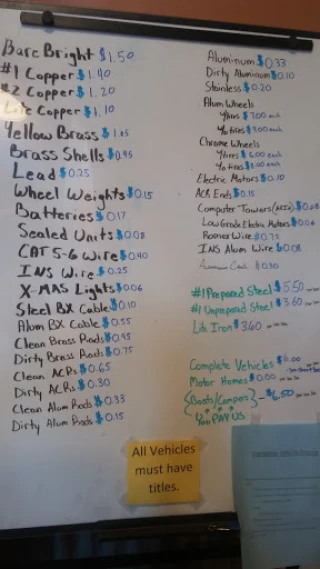 Bare Bright $1.50
#1 Copper $1.40
#2 Copper $1.20
Lite Copper $1.10
Yellow Brass $1.05
Brass Shells $0.95
Lead $0.25
Wheel Weights $0.15
Batteries $0.17
Sealed Units $0.08
CAT 5-6 Wire $0.40
INS Wire $0.25
X-MAS Lights $0.06
Steel BX Cable $0.10
Alum BX Cable $0.55
Clean Brass Rads $0.95
Dirty Brass Rads $0.75
Clean ACRs $0.65
Dirty ACRs $0.30
Clean Alum Rads $0.33
Dirty Alum Rads $0.15
Aluminum $0.33
Dirty Aluminum $0.10
Stainless $0.20
Alum Wheels
w/tires $7.00 each
w/o tires $9.00 each
Chrome Wheels
w/tires $6.00 each
w/o tires $8.00 each
Electric Motors $0.10
ACR Ends $0.15
Computer Towers $0.08
Low Grade Electric Motors $0.06
Romex Wire $0.72
INS Alum Wire $0.08
$0.30
#1 Prepared Steel $5.50
#1 Unprepared Steel $3.60
Lite Iron $3.60
Complete Vehicles $6.00
Motor Homes $0.00
{Boats/Campers} - $6.50
You PAY US
All Vehicles
must have
titles.